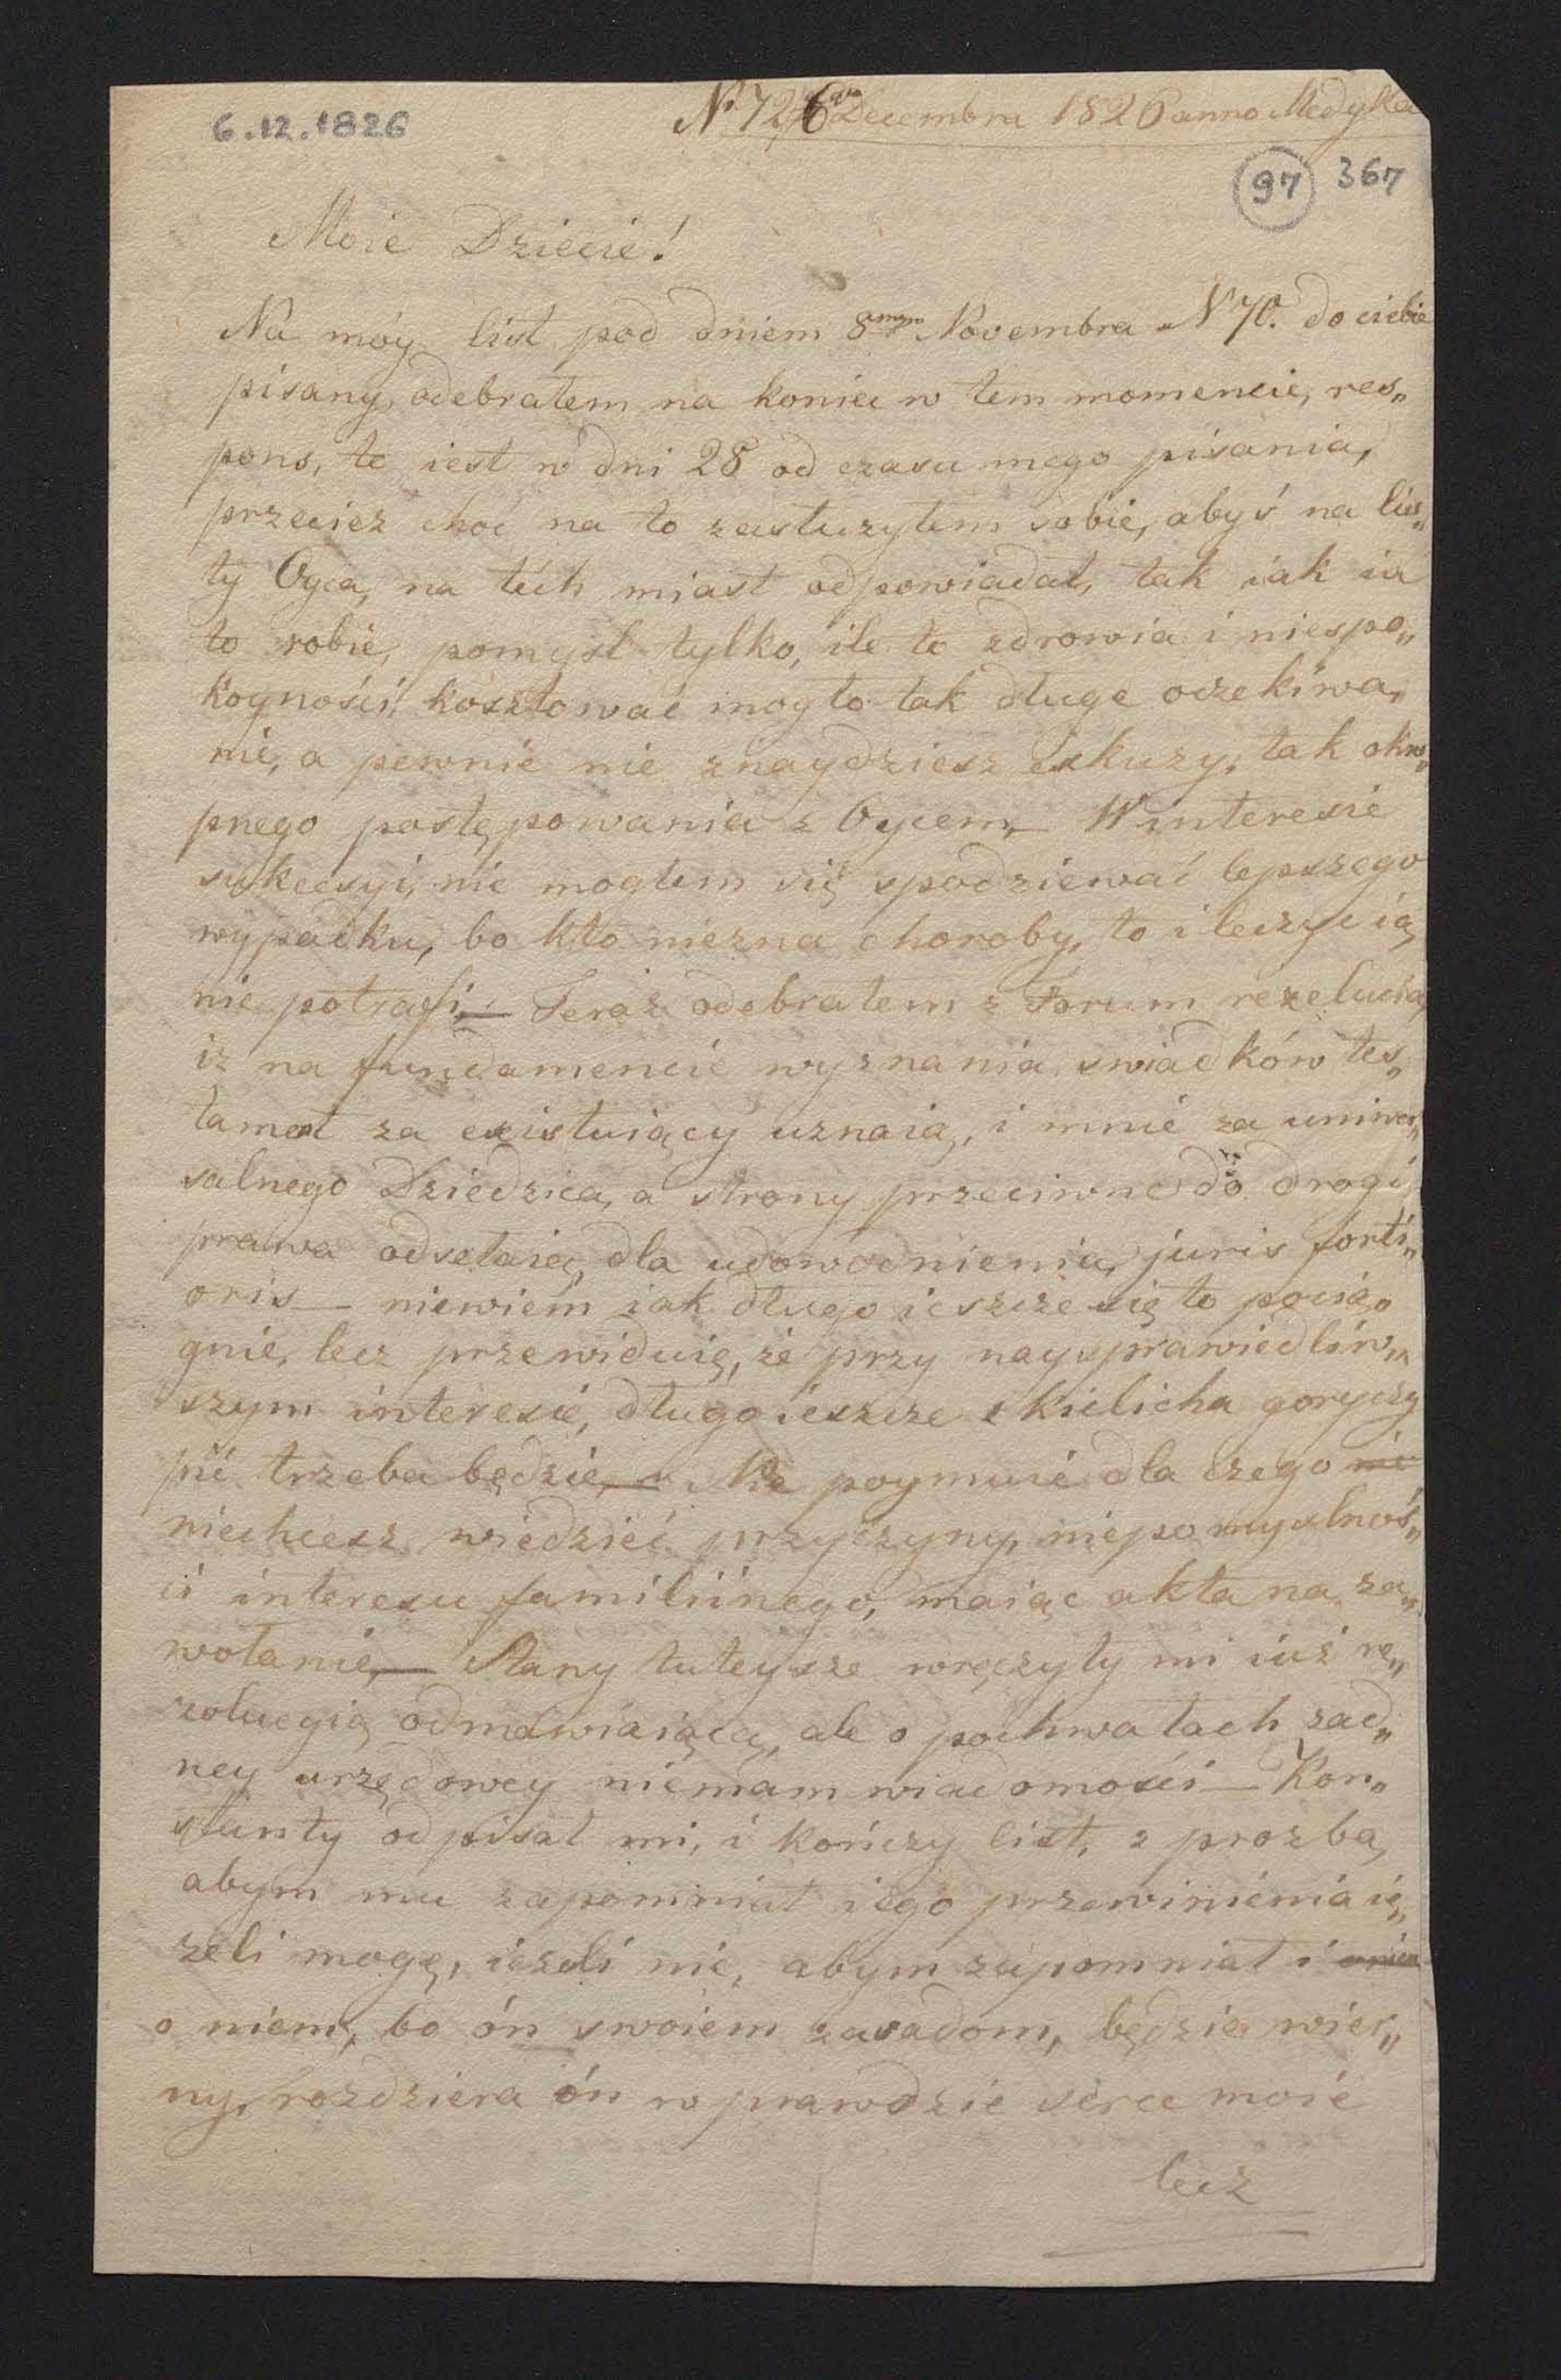 6.12.1826
N. 72 6 Decembra 1826 anno Medyka
97 367
Moie Dziecie!
Na móy list pod dniem 8 Novembra N 70. do ciebie
pisany, odebrałem na koniec w tem momencie, res„
pons, to iest w dni 28 od czasu mego pisania,
przecież choć na to zasłużyłem sobie, abyś na lis„
ty Oyca, na téch miast odpowiadał, tak iak ia
to robie, pomyśl tylko, ile to zdrowia i niespo„
koyności, kosztować mogło tak długe oczekiwa„
nie, a pewnie nie znaydziesz exkuzy, tak okro„
pnego postępowania z Oycem,— W interesie
sukcesyi, nie mogłem się spodziewać lepszego
wypadku, bo kto niezna choroby, to i leczyc ią
nie potrafi.— Teraz odebrałem z Forum rezolucią
iz na fundamencie wyznania swiadków tes„
tament za existuiący uznaią, i mnie za uniwer„
salnego Dziedzica, a strony przeciwne do drogi
prawa odsełaią, dla udowodnienia, juris forti„
oris— niewiem iak długo ieszcze się to pocią„
gnie, lecz przewiduię, że przy naysprawiedliw„
szym interesie, długo ieszcze z kielicha goryczy
pić trzeba będzie,— Nie poymuie dla czego nie
niechcesz wiedzieć przyczyny, niepomyslnoś„
ci interesu familiinego, maiąc akta na za„
wołanie,— Stany tuteysze wręczyły mi iuż re„
zolucyią odmawiaiącą, ale o pochwałach żad„
ney urzędowey niemam wiadomości— Kon„
stanty odpisał mi, i kończy list, z prozbą,
abym mu zapomniał iego przewinienia ie„
zeli mogę, iezeli nie, abym zapomniał i
o niem, bo ón swoiem zasadom, będzie wier„
ny, rozdziera ón w prawdzie serce moie
lecz